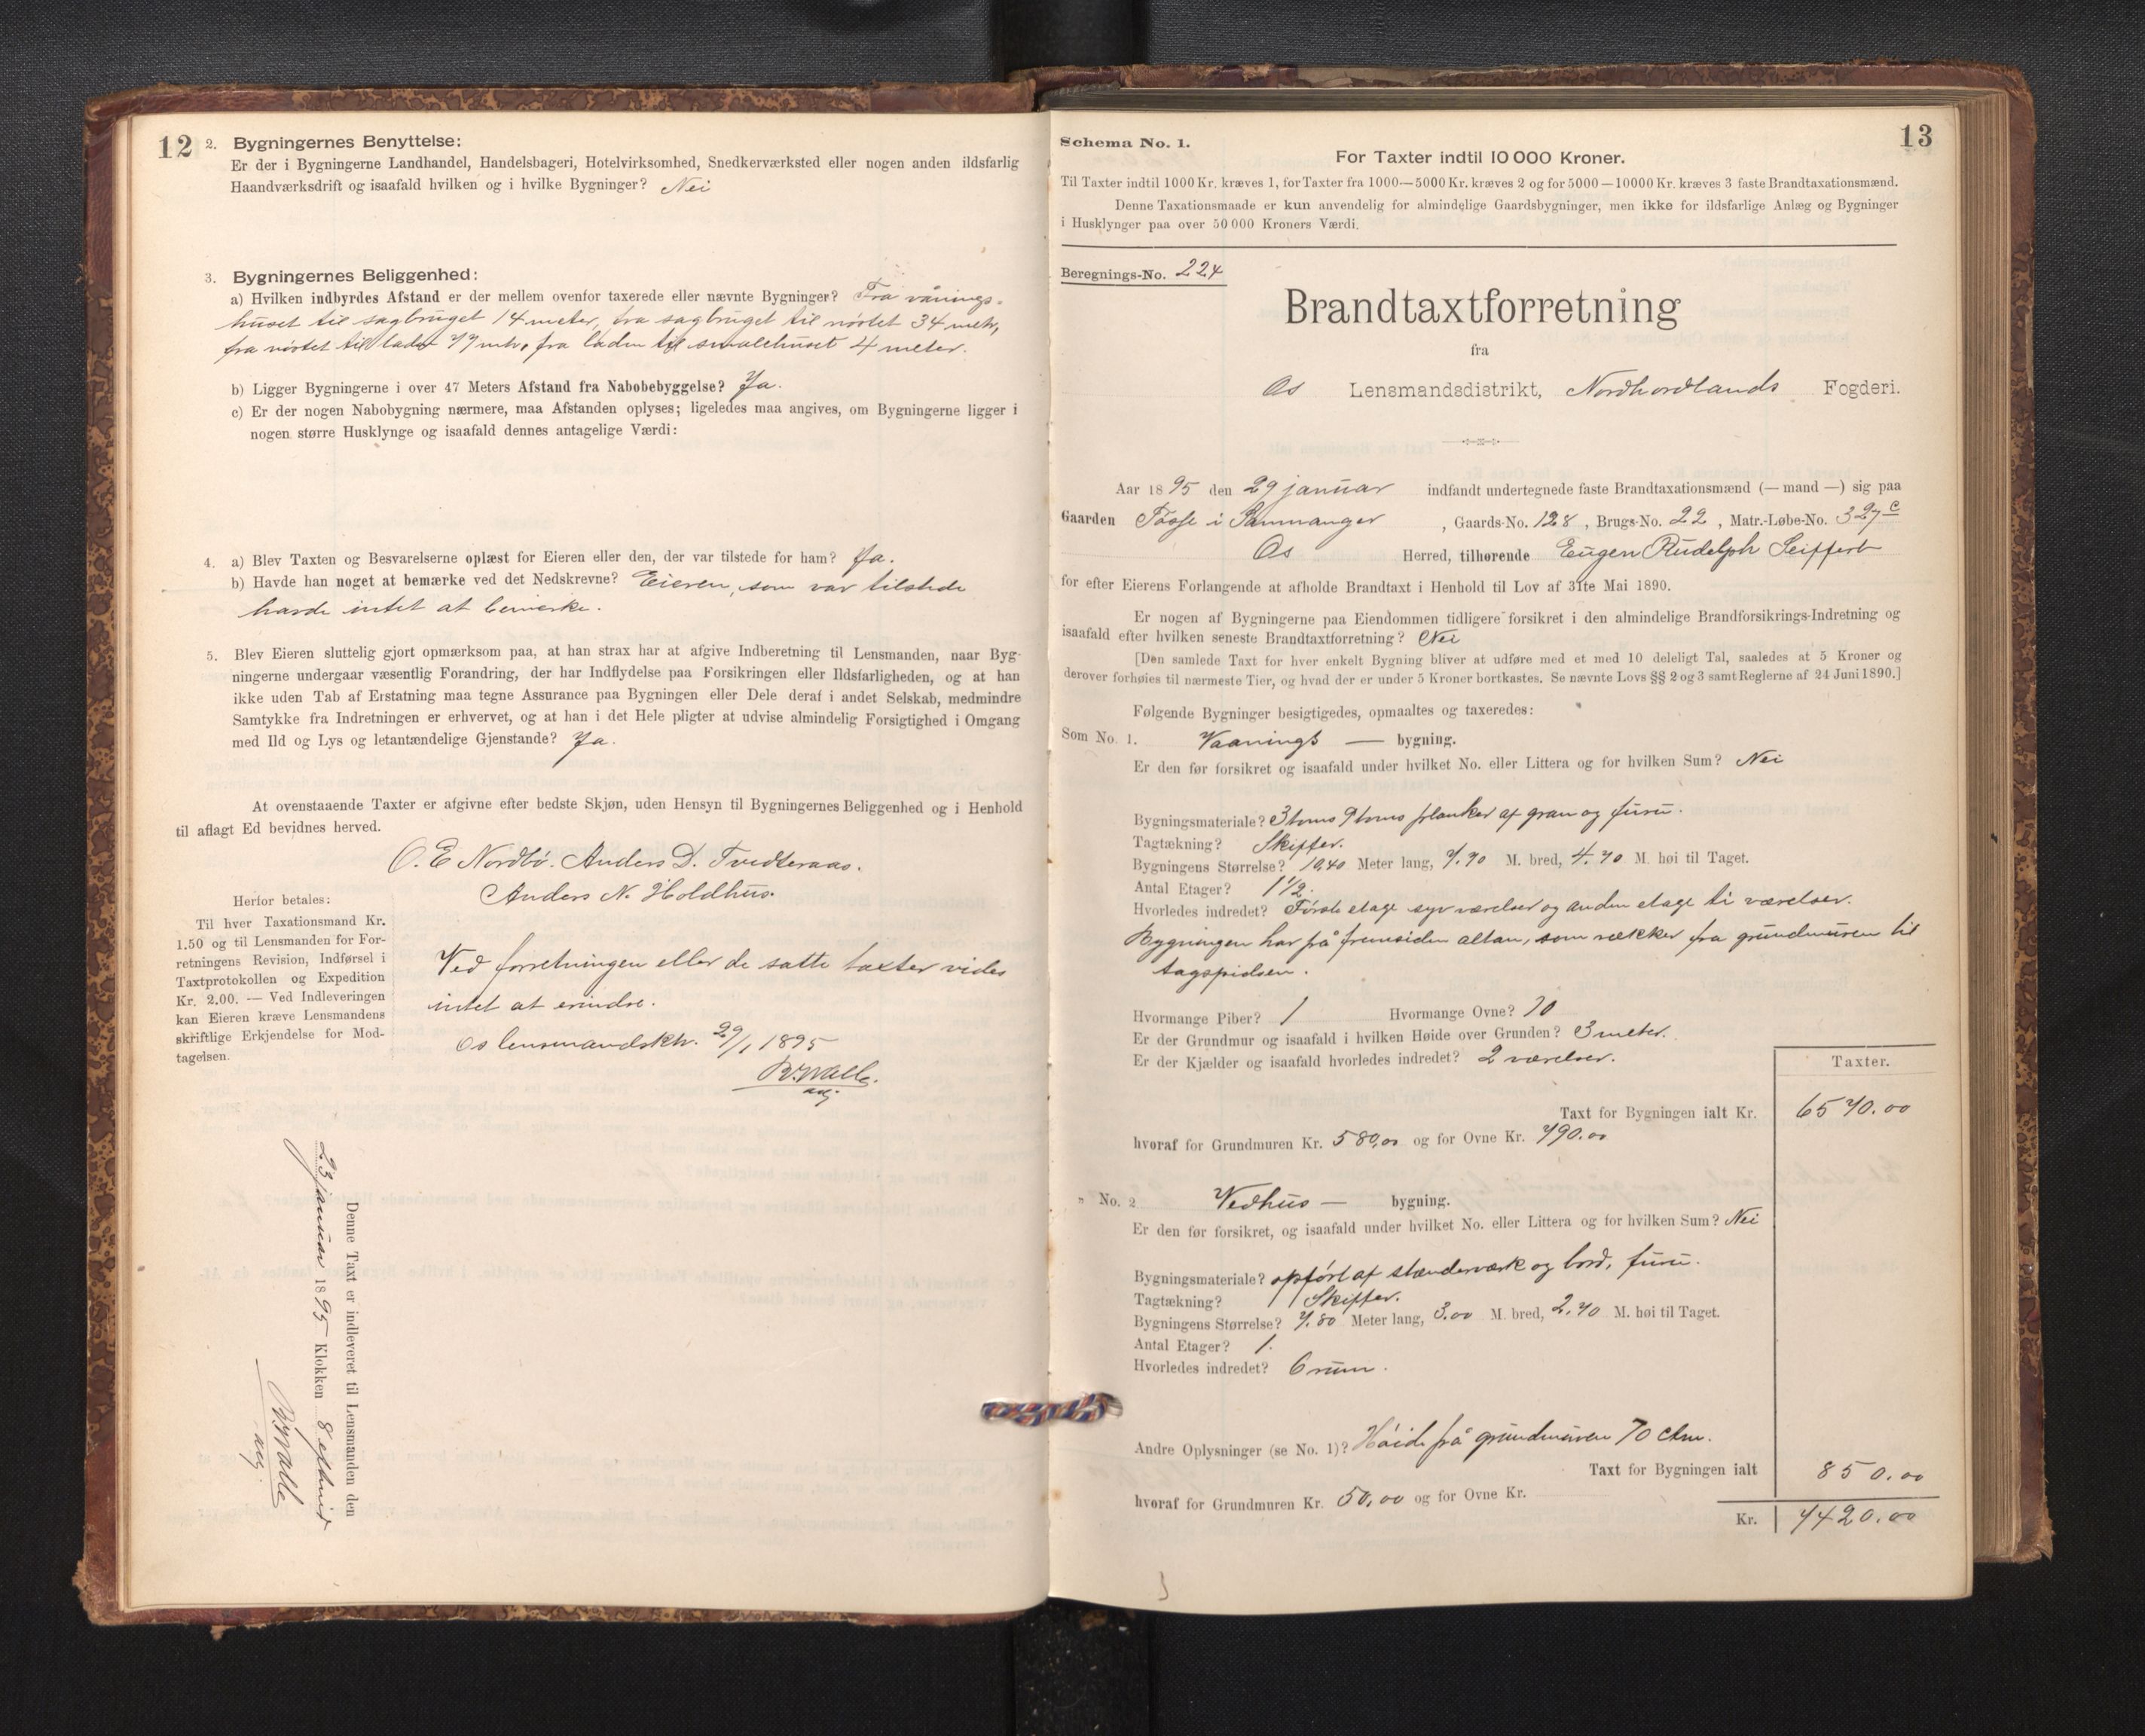 12
2. Bygningernes Benyttelse:
Er der i Bygningerne Landhandel, Handelsbageri, Hotelvirksomhed, Snedkerværksted eller nogen anden ildsfarlig
Haandværksdrift og isaafald hvilken og i hvilke Bygninger? Nei
3. Bygningernes Beliggenhed:
a) Hvilken indbyrdes Afstand er der mellem ovenfor taxerede eller nævnte Bygninger? Fra vånings-
huset til sagbruget 14 meter, fra sagbruget til nöstet 34 metr,
fra nöstet til laden 77 mtr, fra laden til smalehuset 4 meter.
b) Ligger Bygningerne i over 47 Meters Afstand fra Nabobebyggelse? Ja.
c) Er der nogen Nabobygning nærmere, maa Afstanden oplyses; ligeledes maa angives, om Bygningerne ligger i
nogen større Husklynge og isaafald dennes antagelige Værdi:
4. a) Blev Taxten og Besvarelserne oplæst for Eieren eller den, der var tilstede for ham? Ja.
b) Havde han noget at bemærke ved det Nedskrevne? Eieren, som var tilstede
havde intet at bemerke.
5. Blev Eieren sluttelig gjort opmærksom paa, at han strax har at afgive Indberetning til Lensmanden, naar Byg-
ningerne undergaar væsentlig Forandring, der har Indflydelse paa Forsikringen eller Ildsfarligheden, og at han
ikke uden Tab af Erstatning maa tegne Assurance paa Bygningen eller Dele deraf i andet Selskab, medmindre
Samtykke fra Indretningen er erhvervet, og at han i det Hele pligter at udvise almindelig Forsigtighed i Omgang
med Ild og Lys og letantændelige Gjenstande? Ja.
At ovenstaaende Taxter er afgivne efter bedste Skjøn, uden Hensyn til Bygningernes Beliggenhed og i Henhold
til aflagt Ed bevidnes herved.
O. E Nordbö. Anders D. Tvedteraas.
Anders N. Holdhus.
Herfor betales:
Til hver Taxationsmand Kr.
1.50 og til Lensmanden for For-
retningens Revision, Indførsel i
Taxtprotokollen og Expedition
Kr. 2.00. — Ved Indleveringen
kan Eieren kræve Lensmandens
skriftlige Erkjendelse for Mod-
tagelsen.
Ved forretningen eller de satte taxter vides
intet at erindre.
Os lensmandsktr. 29/1 1895
Denne Taxt er indleveret til Lensmanden den
23 januar 1895 Klokken 8 eftmid
13
Schema No. 1.
For Taxter indtil 10 000 Kroner.
Til Taxter indtil 1000 Kr. kræves 1, for Taxter fra 1000—5000 Kr. kræves 2 og for 5000—10000 Kr. kræves 3 faste Brandtaxationsmænd.
Denne Taxationsmaade er kun anvendelig for almindelige Gaardsbygninger, men ikke for ildsfarlige Anlæg og Bygninger
i Husklynger paa over 50 000 Kroners Værdi.
Beregnings-No. 224
Brandtaxtforretning
fra
Os Lensmandsdistrikt, Nordhordlands Fogderi.
Aar 1895 den 29 januar indfandt undertegnede faste Brandtaxationsmænd (— mand —) sig paa
Gaarden Tösse i Sammanger, Gaards-No. 128, Brugs-No. 22, Matr.-Løbe-No. 327 c
Os Herred, tilhørende Eugen Rudolph Seiffert
for efter Eierens Forlangende at afholde Brandtaxt i Henhold til Lov af 31te Mai 1890.
Er nogen af Bygningerne paa Eiendommen tidligere forsikret i den almindelige Brandforsikrings-Indretning og
isaafald efter hvilken seneste Brandtaxtforretning? Nei
[Den samlede Taxt for hver enkelt Bygning bliver at udføre med et med 10 deleligt Tal, saaledes at 5 Kroner og
derover forhøies til nærmeste Tier, og hvad der er under 5 Kroner bortkastes. Se nævnte Lovs §§ 2 og 3 samt Reglerne af 24 Juni 1890.]
Følgende Bygninger besigtigedes, opmaaltes og taxeredes:
Som No. 1. Vaanings — bygning.
Er den før forsikret og isaafald under hvilket No. eller Littera og for hvilken Sum? Nei
Bygningsmateriale? 3 toms planker af gran og furu.
Tagtækning? Skiffer.
Bygningens Størrelse? 10,40 Meter lang, 7.70 M. bred, 4.70 M. høi til Taget.
Antal Etager? 1½.
Hvorledes indredet? Første etage syv værelser og anden etage ti værelser.
Bygningen har på fremsiden altan, som rækker fra grundmuren til
tagspidsen.
Hvormange Piber? 1 Hvormange Ovne? 10
Er der Grundmur og isaafald i hvilken Høide over Grunden? 3 meter.
Er der Kjælder og isaafald hvorledes indredet? 2 værelser.
Taxter.
Taxt for Bygningen ialt Kr. 6570.00
hvoraf for Grundmuren Kr. 580,00 og for Ovne Kr. 790.00
" No. 2 Vedhus — bygning.
Er den før forsikret, og isaafald under hvilket No. eller Littera og for hvilken Sum? Nei
Bygningsmateriale? opført af stænderværk og bord, furu.
Tagtækning? Skiffer.
Bygningens Størrelse? 7.80 Meter lang, 3.00 M. bred, 2.70 M. høi til Taget.
Antal Etager? 1.
Hvorledes indredet? 6 rum.
Andre Oplysninger (se No. 1)? Høide på grundmuren 70 ctm.
Taxt for Bygningen ialt 850.00
hvoraf for Grundmuren Kr. 50,00 og for Ovne Kr.
Kr. 7420.00